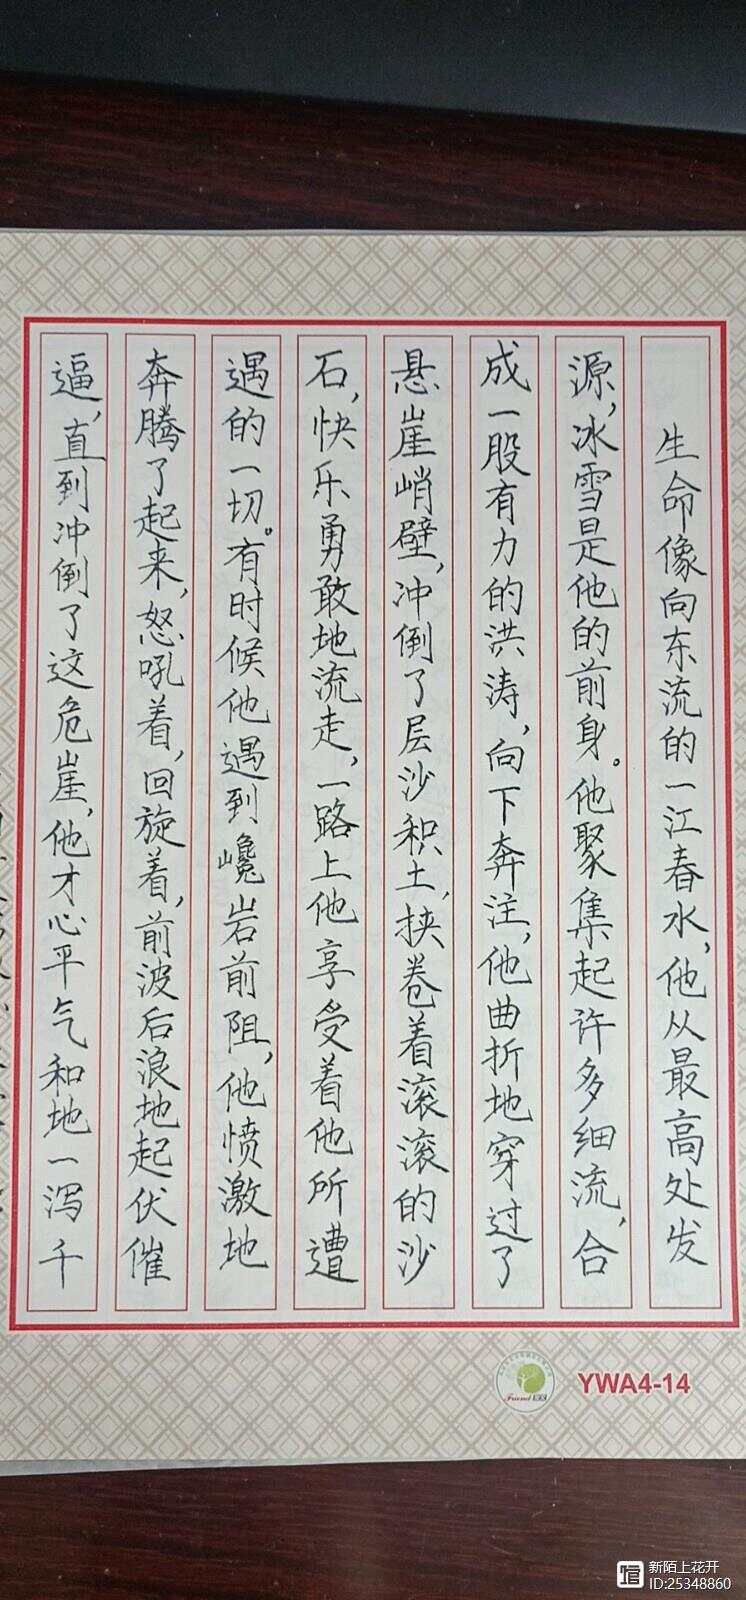 生命像向东流的一江春水，他从最高处发
源，冰雪是他的前身。他聚集起许多细流，合
成一股有力的洪涛，向下奔注，他曲折地穿过了
悬崖峭壁，冲倒了层沙积土，挟卷着滚滚的沙
石，快乐勇敢地流走，一路上他享受着他所遭
遇的一切。有时候他遇到巉岩前阻，他愤激地
奔腾了起来，怒吼着，回旋着，前波后浪地起伏催
逼，直到冲倒了这危崖，他才心平气和地一泻千
YWA4-14
新陌上花开
ID:25348860